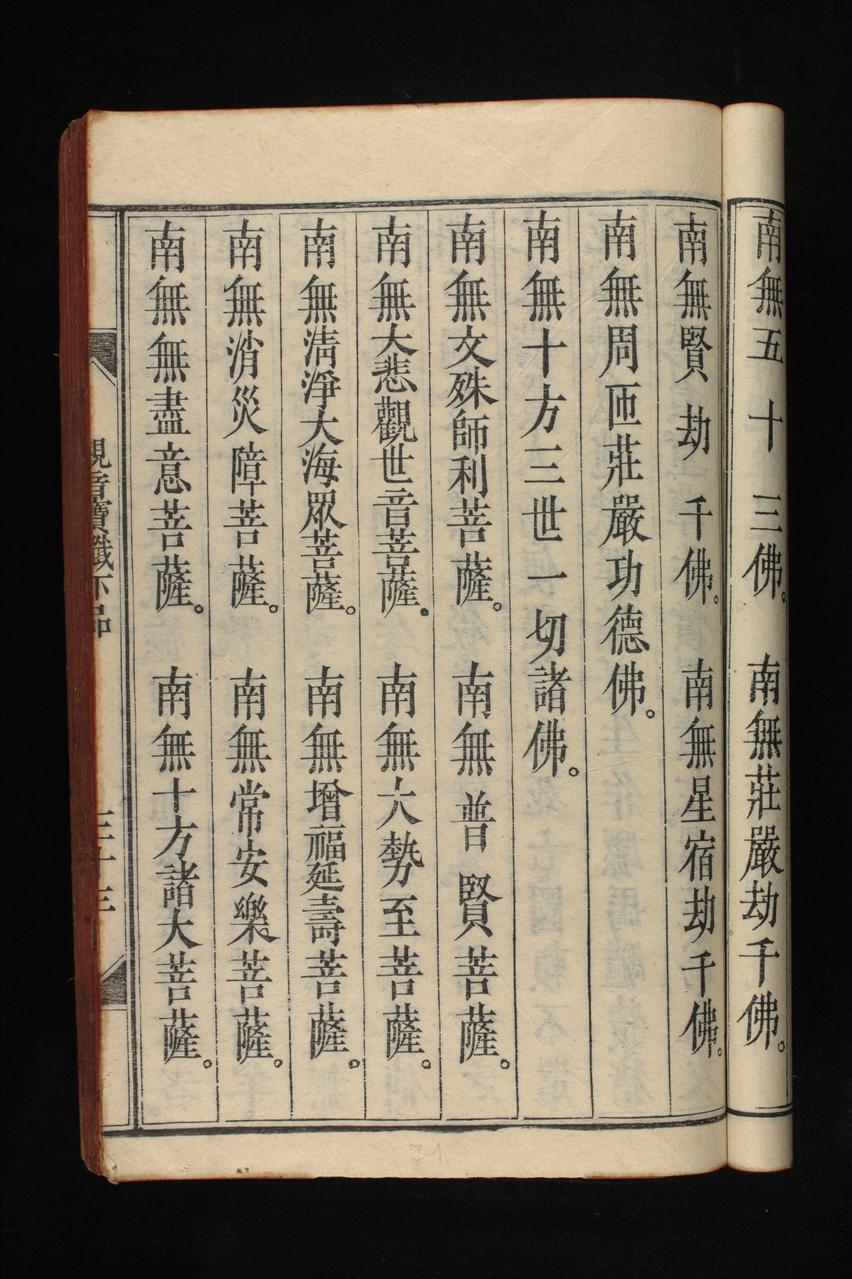 南無五十三佛。　南無莊嚴劫千佛。
南無賢劫千佛。　南無星宿劫千佛。
南無周匝莊嚴功德佛。
南無十方三世一切諸佛。
南無文殊師利菩薩。　南無普賢菩薩。
南無大悲觀世音菩薩。　南無大勢至菩薩。
南無清淨大海眾菩薩。　南無增福延壽菩薩。
南無消災障菩薩。　南無常安樂菩薩。
南無無盡意菩薩。　南無十方諸大菩薩。
觀音寶懺下品　三十三
71